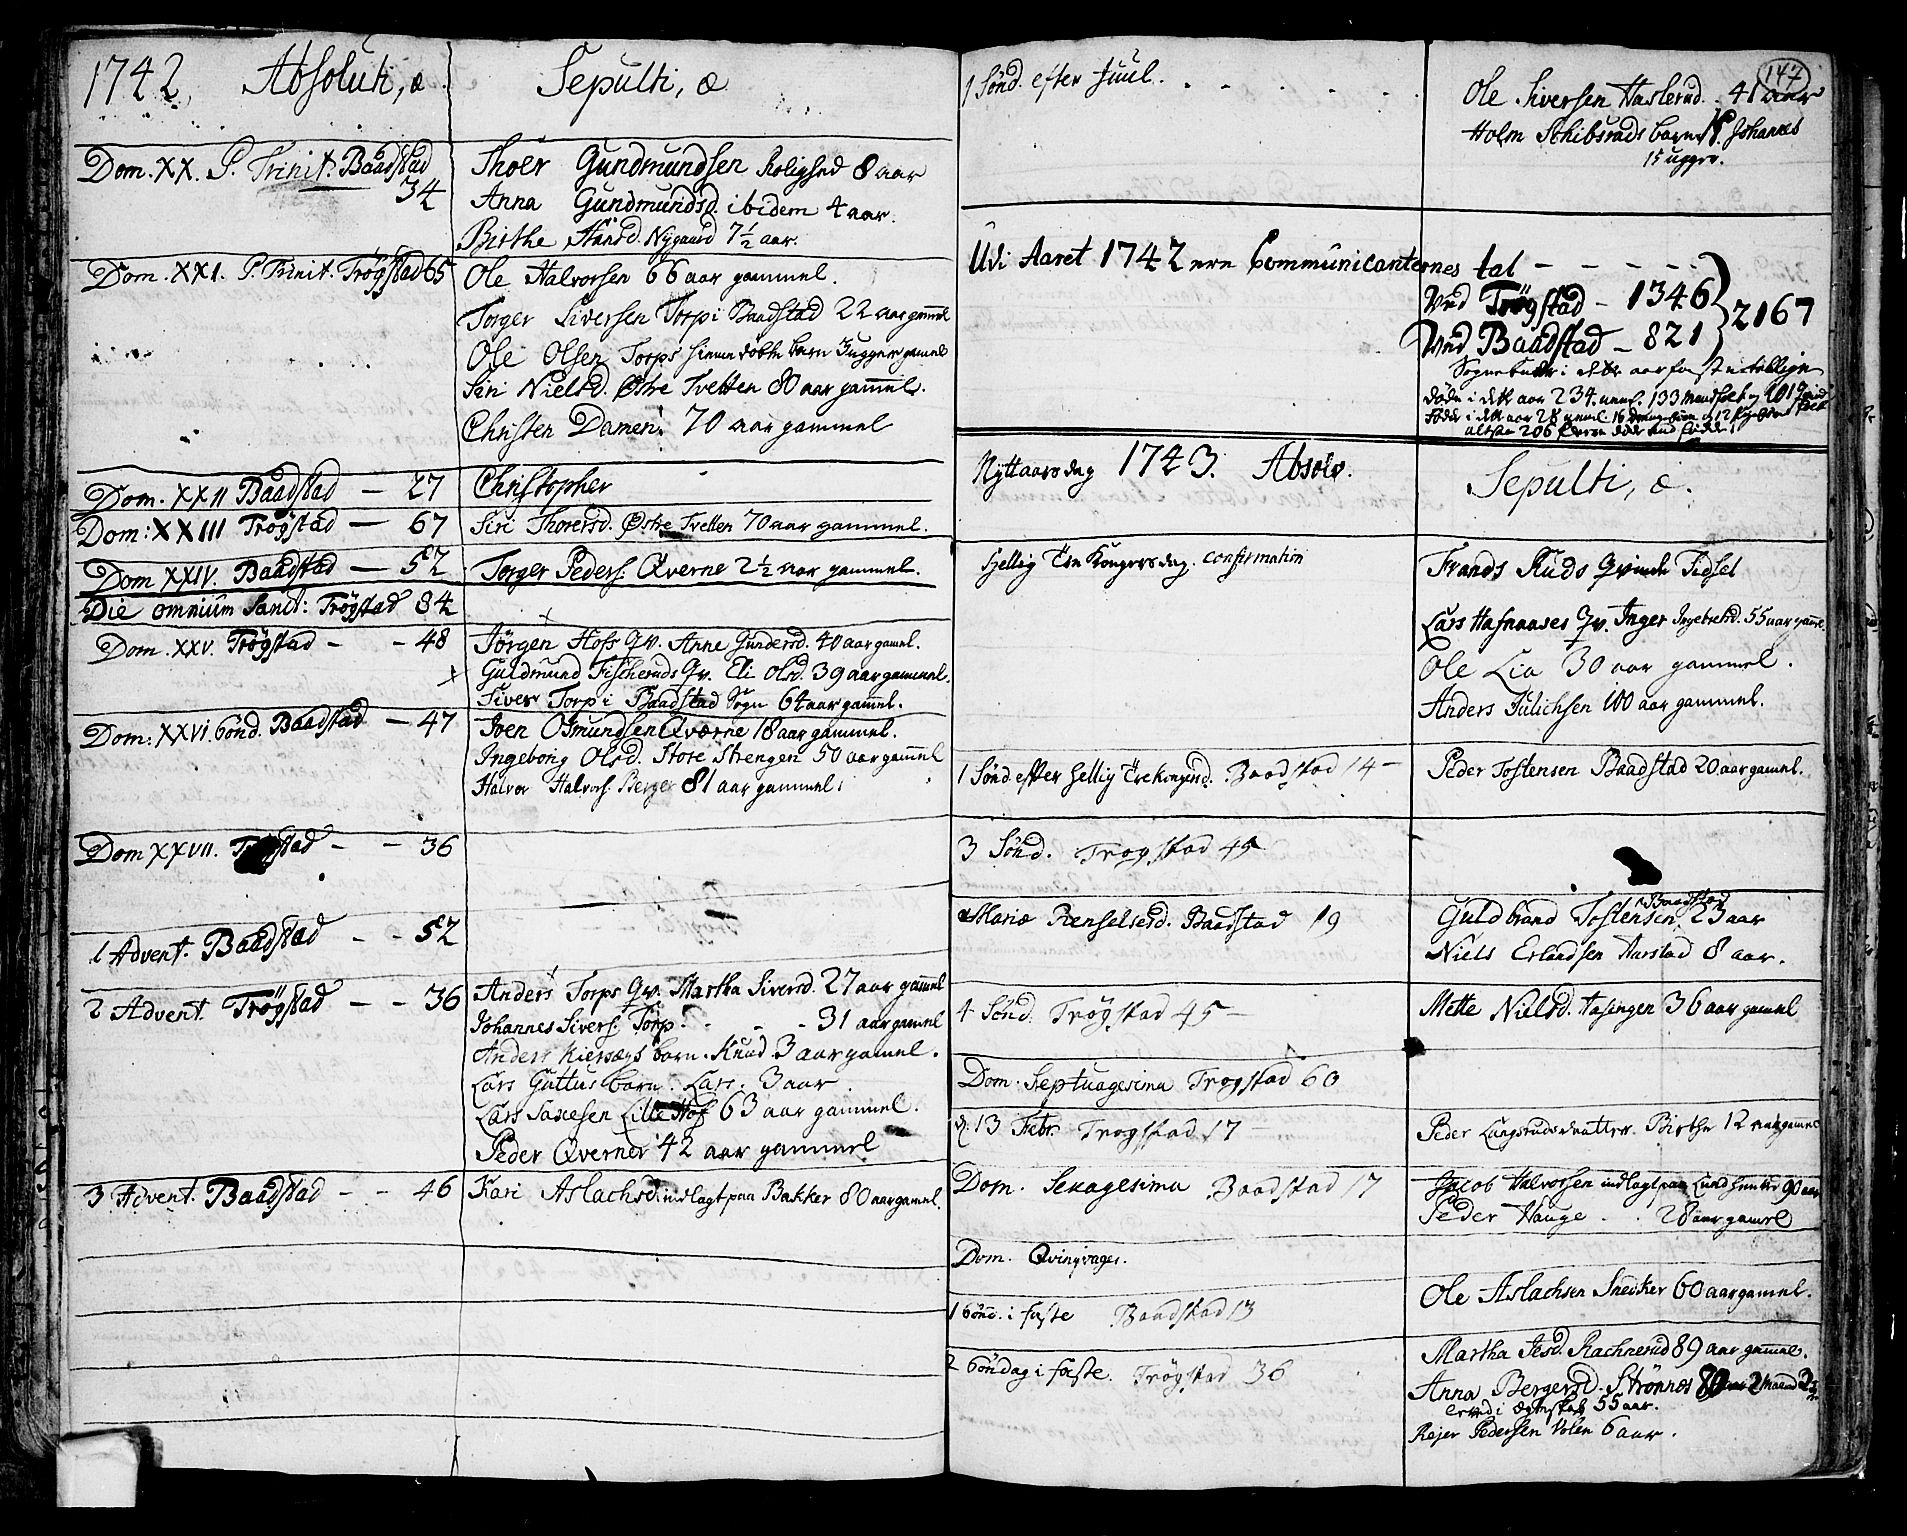 1742. Absoluti, æ
Sepulti, æ
Dom. XX. P. Trinit. Baadstad 34
Thoër Gundmundsen Rolighed 8 aar
Anna Gundmundsd. ibidem 4 aar.
Birthe Hansd. Nygaard 7½ aar.
Dom. XXI. P. Trinit. Trögstad 65
Ole Halvorsen 66 aar gammel.
Torger Siversen Torp i Baadstad 22 aar gamel
Ole Olsen Torps barn 3 uger gamel
Siri Nielsd. Østre Tvetten 80 aar gammel.
Christen Damen. 70 aar gammel
Dom. XXII Baadstad — 27
Christopher
Dom: XXIII Trögstad — 67
Siri Thorersd. Østre Tvetten 70 aar gammel.
Dom XXIV. Baadstad — 52
Torger Peders. Qverne 2½ aar gammel.
Die omnium Sanct: Trögstad 84
Dom. XXV. Trögstad - - 48
Jörgen Hofs Qv. Anne Gundersd. 40 aar gamel.
Guldmund Fischeruds Qv. Eli Olsd. 39 aar gammel.
Siver Torp i Baadstad Sogn 64 aar gamel.
Dom: XXVI Sönd. Baadstad — 47
Joen Osmundsen Qværne 18 aar gammel.
Ingeborg Olsd. Store Strengen 50 aar gammel
Halvor Halvors. Berger 81 aar gammel.
Dom XXVII. Trögstad - - 36
1 Advent. Baadstad - - 52
2 Advent. Trögstad - - 36
Anders Torps Qv. Martha Siversd. 27 aar gamel
Johannes Sivers. Torp. - - - 31 aar gamel
Anders barn. Knud. 3 aar gamel.
Lars Guttus barn. Lars. 3 aar.
Lars Lille Hof 63 aar gammel.
Peder Qverner 42 aar gammel
3 Advent. Baadstad - - 46
Kari Aslachsd indlagt paa Bakker 80 aar gamel.
147
1 Sönd. efter Juul. - - - - -
Ole Siversen Haslerud. 41 aar
Holm Schibsrads barn Johannes
15 uger.
Udi Aaret 1742 ere Communicanternes tal - - - -
Ved Trögstad - 1346
Ved Baadstad - 821
2167
döde i dette aar 234. neml. 133 mandkiön og 101
Nyttaarsdag 1743. Absolv.
Sepulti, æ.
Hellig Tre Kongers dag. confirmation
Frands Ruds Qvinde Sidsel
Lars Hafnaases Qv. Inger Ingebretsd. 55 aar gamel.
Ole Lia 30 aar gammel.
Anders Julichsen 100 aar gammel.
1 Sönd efter Hellig Trekongersd. Baadstad 14 —
Peder Tostensen Baadstad 20 aar gamel.
3 Sönd. Trogstad 45
Mariæ Renselsesd. Baadstad 19
Baadstad
Guldbrand Tostensen 23 aar
Niels Erlandsen Aarstad 8 aar.
4 Sönd. Trögstad 45 —
Mette Nielsd. Hasingen 36 aar gamel
Dom. Septuagesima Trogstad 60
d. 13 Febr. Trogstad 17 —
Peder Langsruds datter Birthe 12 aar gamel
Dom. Sexagesima Baadstad 17
Jacob Halvorsen indlagt paa Lund 90 aar
Peder Hauge . . 28 aar gamel
Dom. Qvinqvages.
Ole Aslachsen Snedker 60 aar gamel.
1 Sönd. i faste Baadstad 13
Martha Rachnerud 89 aar gamel.
2 Söndag i faste. Trögstad 36
Anna Bergersd. Strönnes
i ægteskab 55 aar.
Rejer Pedersen Volen 6 aar.